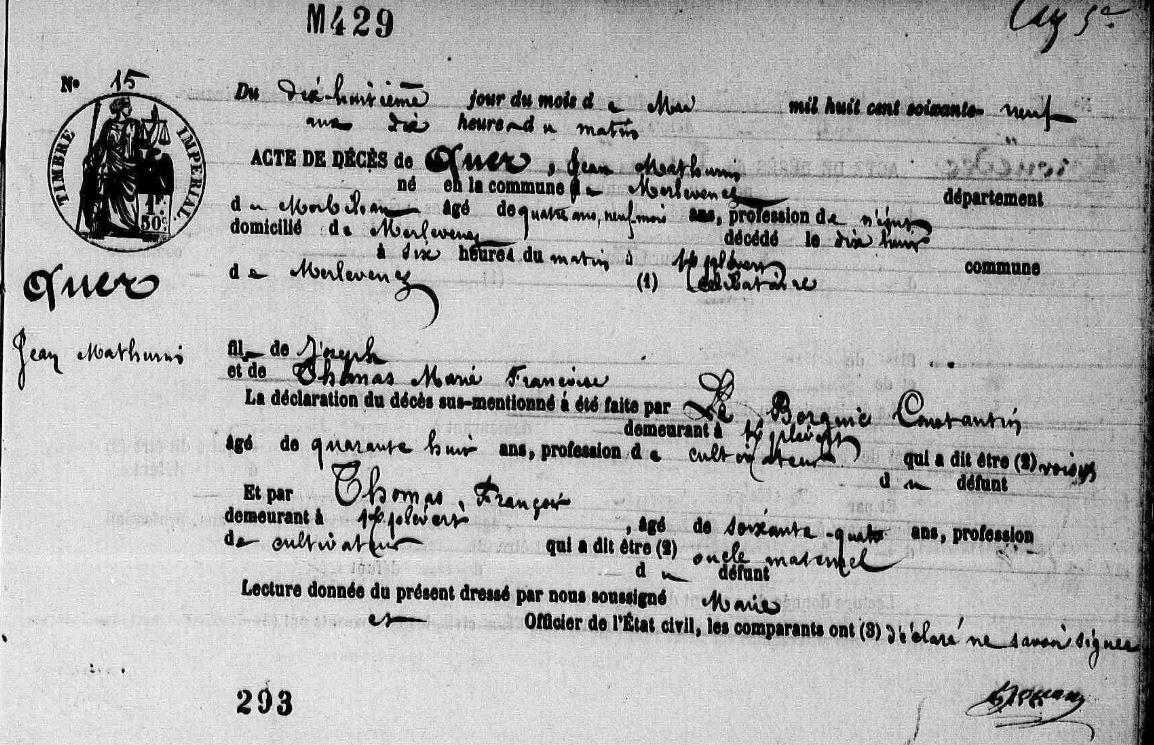 M429
Nº 15
TIMBRE IMPERIAL
1F 50c
Du dix huitième jour du mois de Mai mil huit cent soixante neuf
aux dix heures du matin
ACTE DE DÉCÈS de Quer, Jean Mathurin
né en la commune de Merlevenez département
du Morbihan âgé de quatre ans, neuf mois ans, profession de
domicilié de Merlevenez décédé le dix huit
à six heures du matin à commune
de Merlevenez (1) Celibataire
Quer
Jean Mathurin
fils de Joseph
et de Thomas Marie Françoise
La déclaration du décès sus-mentionné à été faite par Le Constantin
demeurant à
âgé de quarante huit ans, profession de cultivateur qui a dit être (2) voisin
du défunt
Et par Thomas, François
demeurant à , âgé de soixante quatre ans, profession
de cultivateur qui a dit être (2) oncle maternel
du défunt
Lecture donnée du présent dressé par nous soussigné Maire
et Officier de l'État civil, les comparants ont (3) déclaré ne savoir signer
293